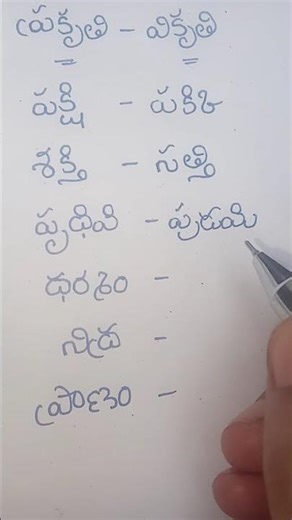 ప్రకృతి - వికృతి
పక్షి - పకికి
శక్తి - సత్తి
పృథివి - పుడమి
ధరశం -
నిద్ర -
ప్రాణం -